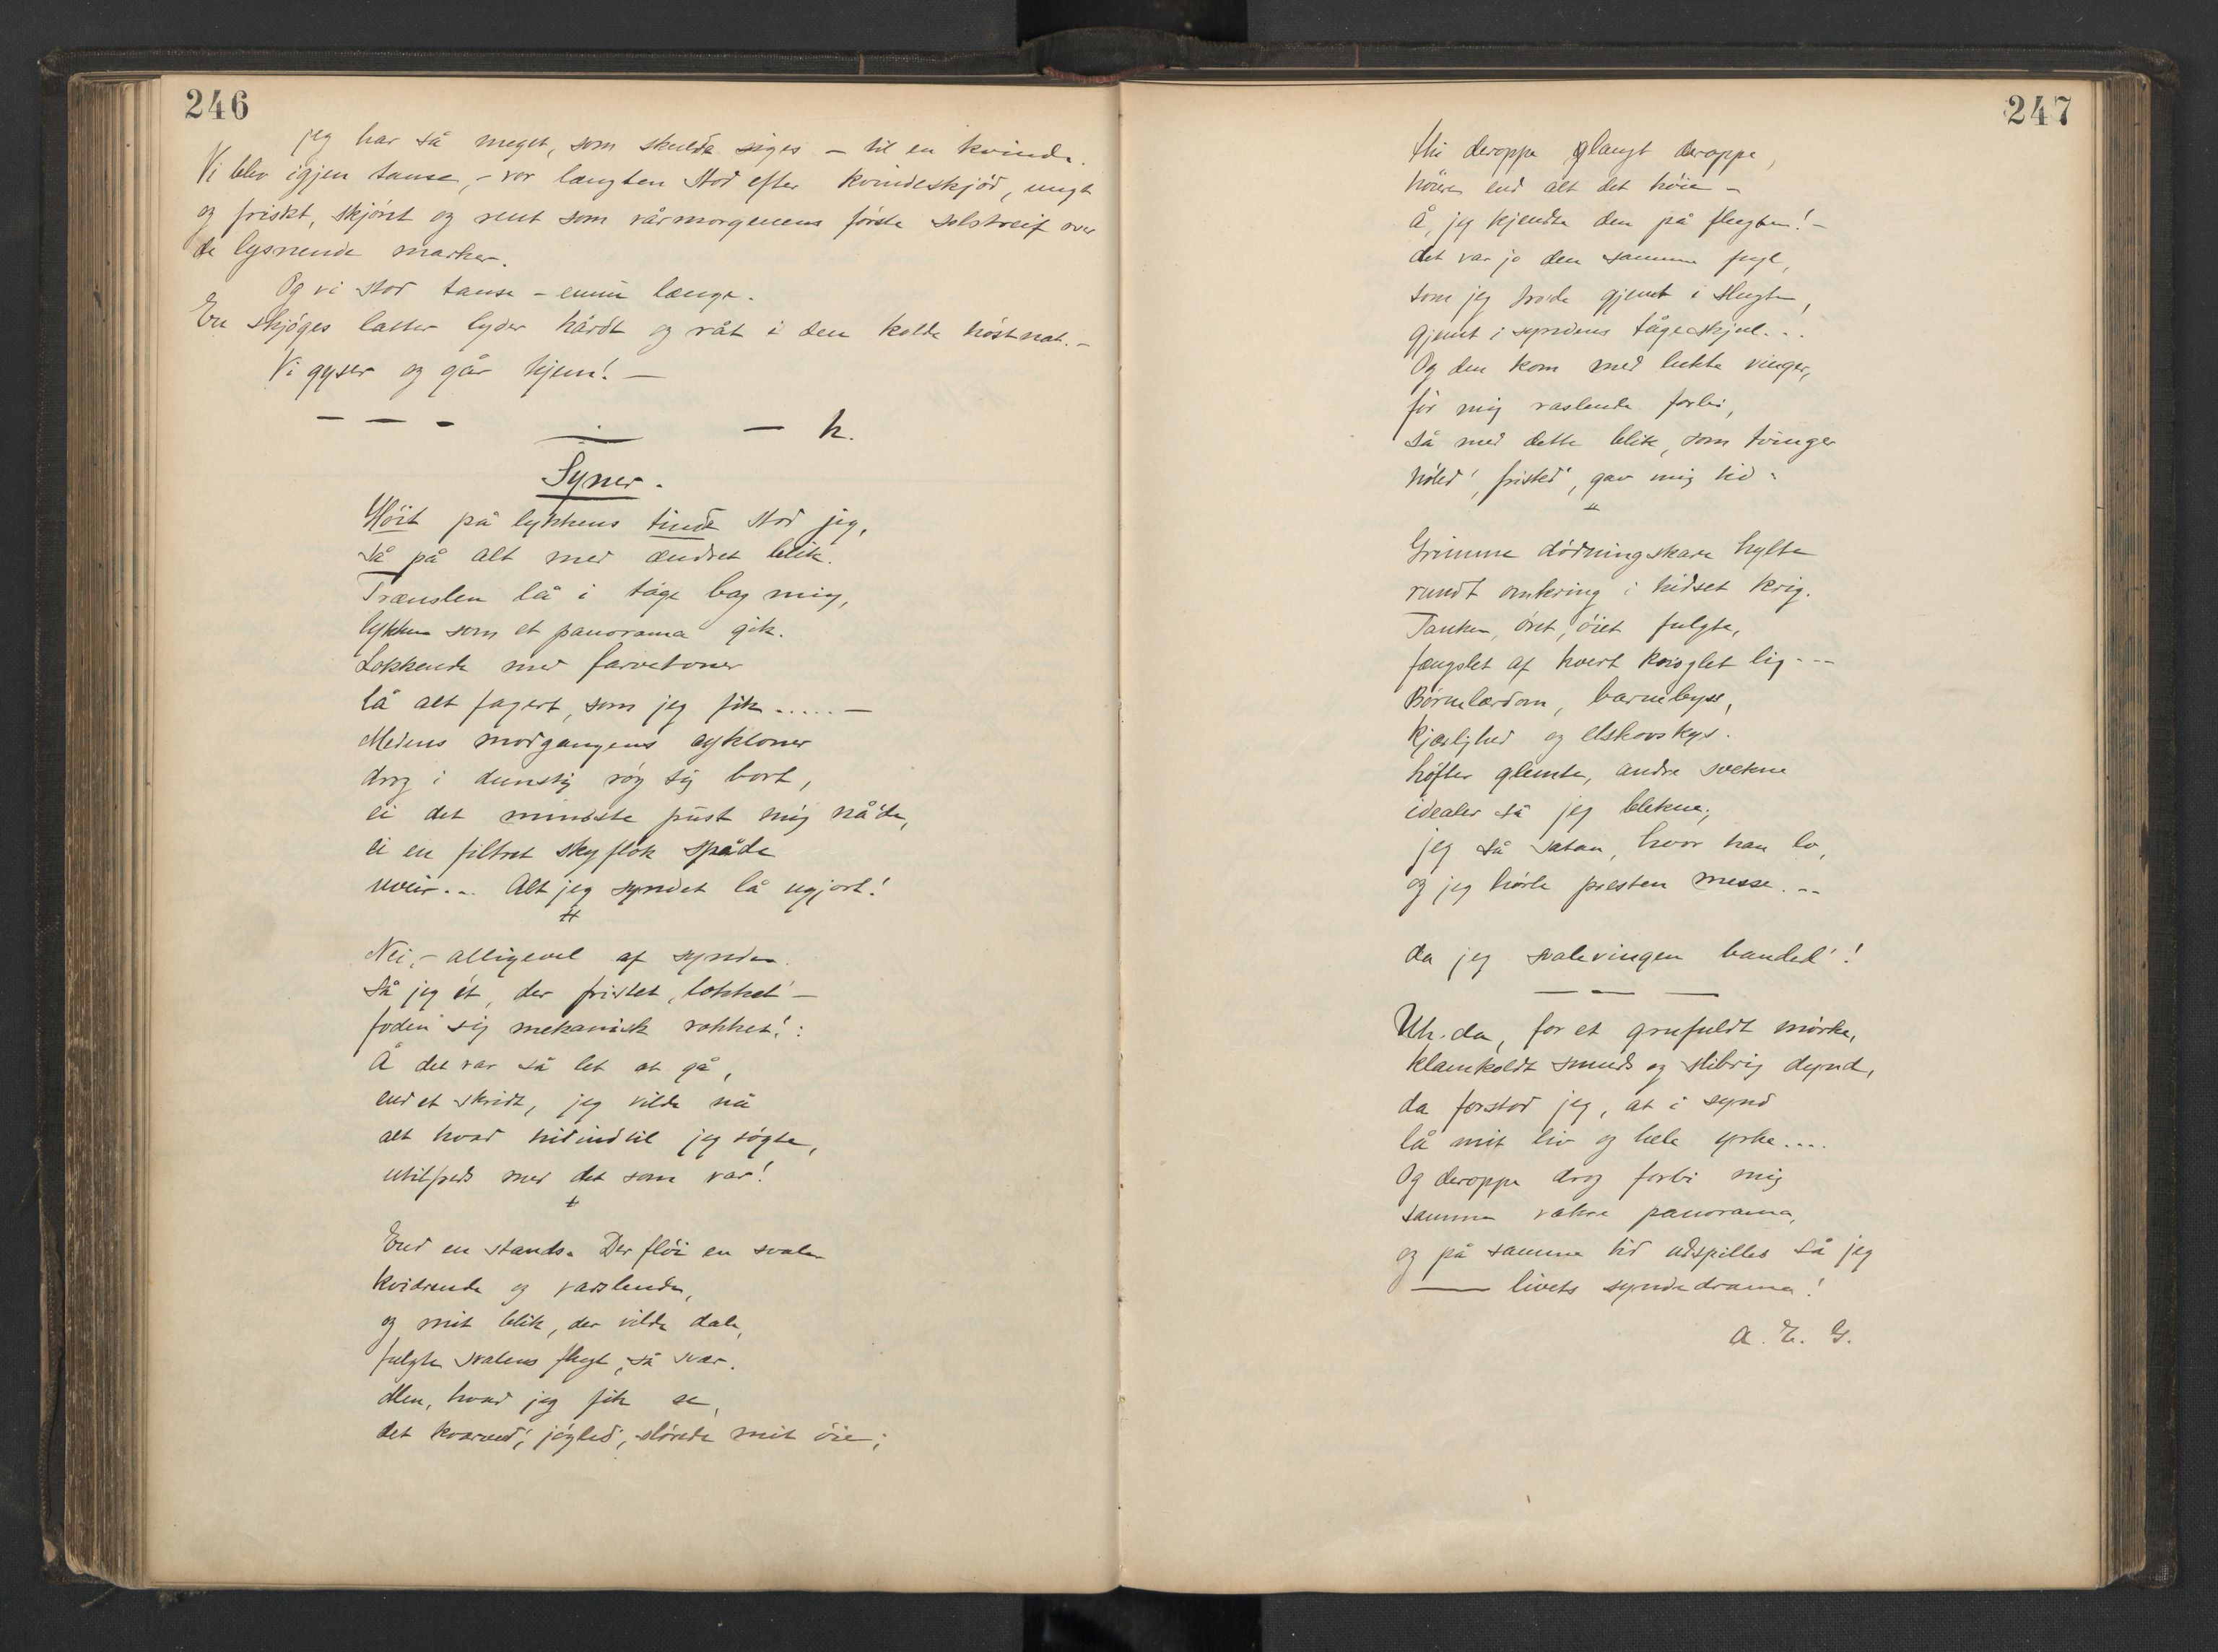 246
jeg har så meget, som skulde siges – til en kvinde.
Vi blev igjen tause, – vor længten stod efter kvindeskjød, ungt
og friskt, skjönt og rent som vårmorgenens förste solstreif over
de lysnende marker.
Og vi stod tause – ennu længe.
En skjöges latter lyder hårdt og råt i den kolde höstnat. –
Vi gyser og går hjem! –
– – –
– h.
Syner.
Höit på lykkens tinde stod jeg,
så på alt med ændret blik.
Trænslen lå i tåge bag mig,
lykken som et panorama gik.
Lokkende med farvetoner
lå alt fagert, som jeg fik ..... –
Medens modgangens cykloner
drog i dunstig røg sig bort,
ei det mindste pust mig nåde,
ei en filtret skyflok spåde
uveir... Alt jeg syndet lå ugjort!
Nei, – alligevel af synden
så jeg ét, der fristet, lokket –
foden sig mekanisk rokket!:
Å det var så let at gå,
end et skridt, jeg vilde nå
alt hvad hidindtil jeg søgte,
utilfreds med det som var!
End en stands. Der flöi en svale
kvidrende og raslende,
og mit blik, der vilde dale,
fulgte svalens flugt, så svær.
Men, hvad jeg fik se,
det kvarved', jøgled', slørede mit öie;
247
thi deroppe glangt deroppe,
höiere end alt det höie –
Å, jeg kjendte den på flugten! –
det var jo den samme fugl,
som jeg trode gjemt i slugten,
gjemt i syndens tågeskjul...
Og den kom med lukte vinger,
för mig raslende forbi,
så med dette blik, som tvinger
höled', fristed', gav mig tid –
Grimme dödningskare hylte
rundt omkring i hidset krig.
Tanken, öret, öiet fulgte,
fængslet af hvert kvisglet lig ---
Börnelærdom, barnebyss,
kjærlighed og elskovskys.
höfter glemte, andre svekne
idealer så jeg blekne;
jeg så satan, hvor han lo,
og jeg hörte presten messe. --
da jeg svalevingen banded'!
– – –
Uh. da, for et grufuldt mörke,
klamkoldt smuds og slibrig dynd,
da forstod jeg, at i synd
lå mit liv og hele yrke....
Og deroppe drog forbi mig
samme vakre panorama,
og på samme tid udspilles så jeg
— livets syndedrama!
A. E. G.